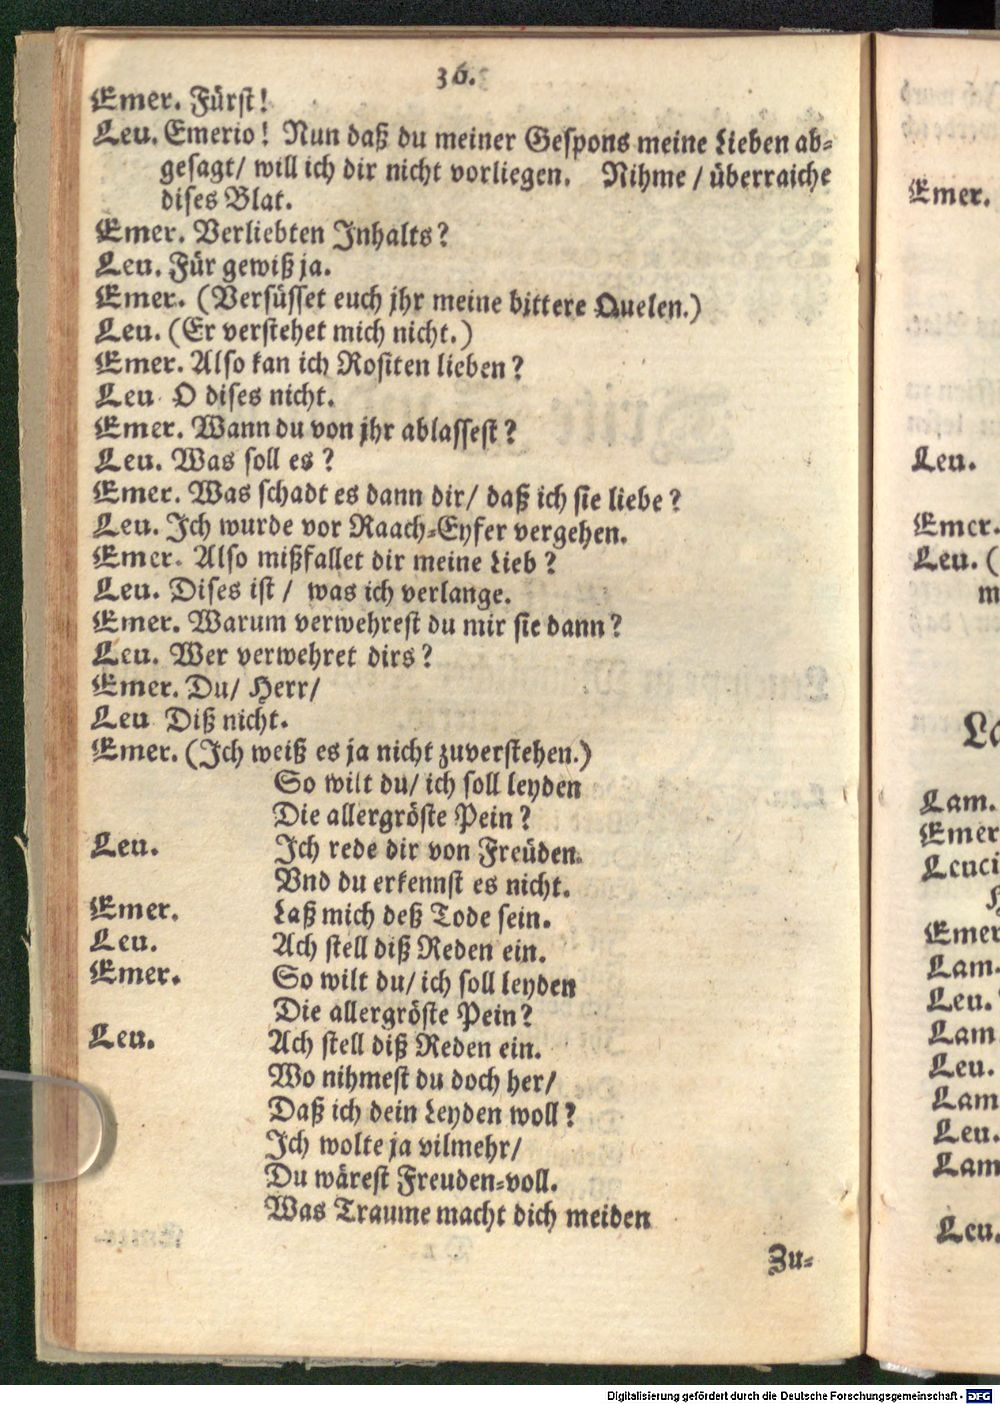 36.
Emer. Fürst!
Leu. Emerio! Nun daß du meiner Gespons meine Lieben ab-
gesagt/ will ich dir nicht vorliegen. Nihme / überraiche
dises Blat.
Emer. Verliebten Inhalts?
Leu. Für gewiß ja.
Emer. (Versüsset euch jhr meine bittere Quelen.)
Leu. (Er verstehet mich nicht.)
Emer. Also kan ich Rositen lieben?
Leu. O dises nicht.
Emer. Wann du von jhr ablassest?
Leu. Was soll es?
Emer. Was schadt es dann dir/ daß ich sie liebe?
Leu. Ich wurde vor Raach-Eyfer vergehen.
Emer. Also mißfallet dir meine Lieb?
Leu. Dises ist / was ich verlange.
Emer. Warum verwehrest du mir sie dann?
Leu. Wer verwehret dirs?
Emer. Du/ Herr/
Leu Diß nicht.
Emer. (Ich weiß es ja nicht zuverstehen.)
So wilt du/ ich soll leyden
Die allergröste Pein?
Leu. Ich rede dir von Freüden.
Vnd du erkennst es nicht.
Emer. Laß mich deß Tode sein.
Leu. Ach stell diß Reden ein.
Emer. So wilt du/ ich soll leyden
Die allergröste Pein?
Leu. Ach stell diß Reden ein.
Wo nihmest du doch her/
Daß ich dein Leyden woll?
Ich wolte ja vilmehr/
Du wärest Freuden-voll.
Was Traume macht dich meiden
Zu-
Emer.
Leu.
Emer.
Leu. (
m
Lam.
Emer
Leuci
Emer
Lam.
Leu.
Lam
Leu.
Lam
Leu.
Lam
Leu.
Digitalisierung gefördert durch die Deutsche Forschungsgemeinschaft - DFG